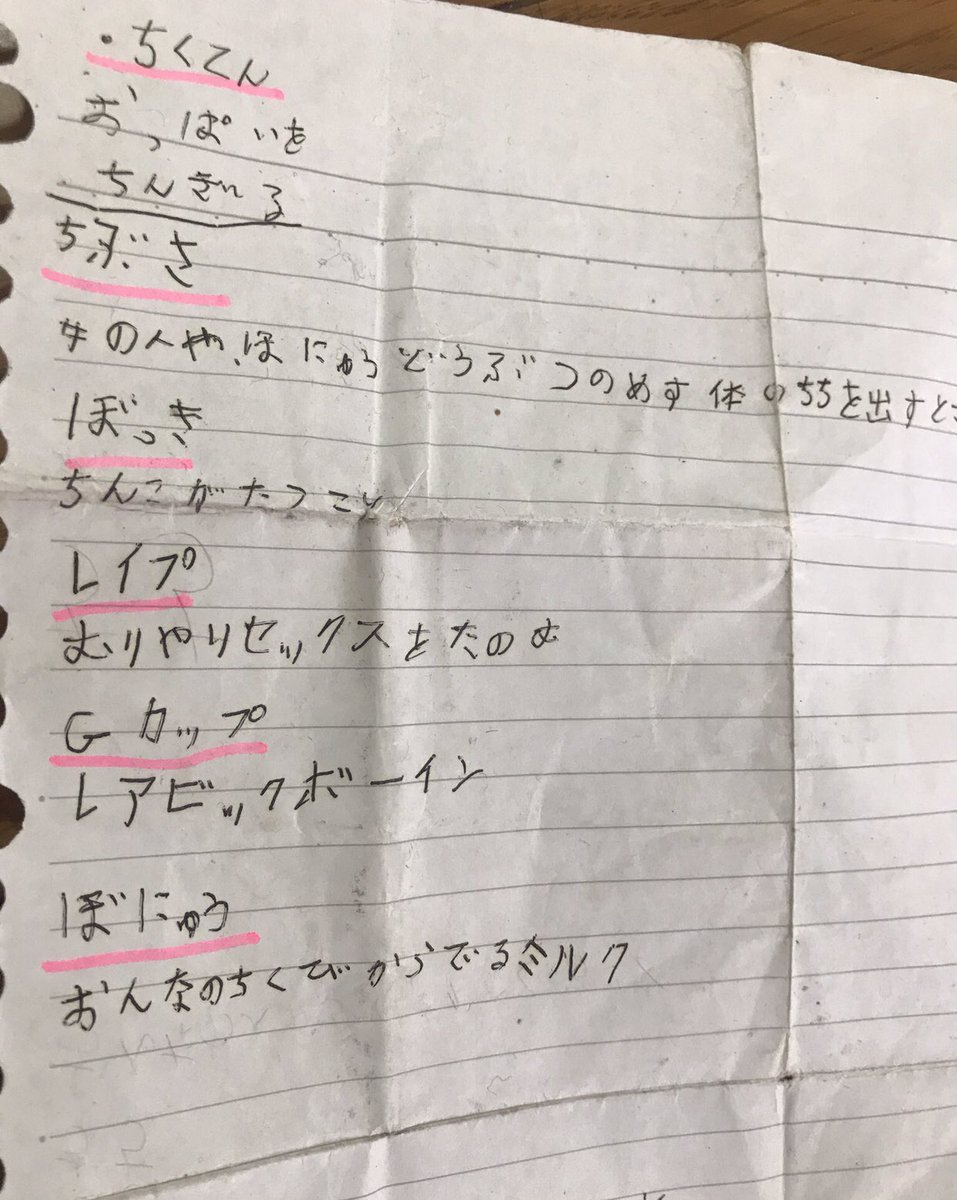 ・ちくてん
おっぱいを
ちんぎる
ちぶさ
女の人や、ほにゅうどうぶつのめす体のちちを出すと
ぼっき
ちんこがたつこと
レイプ
むりやりセックスをたのむ
Gカップ
レアビックボーイン
ぼにゅう
おんなのちくびからでるミルク